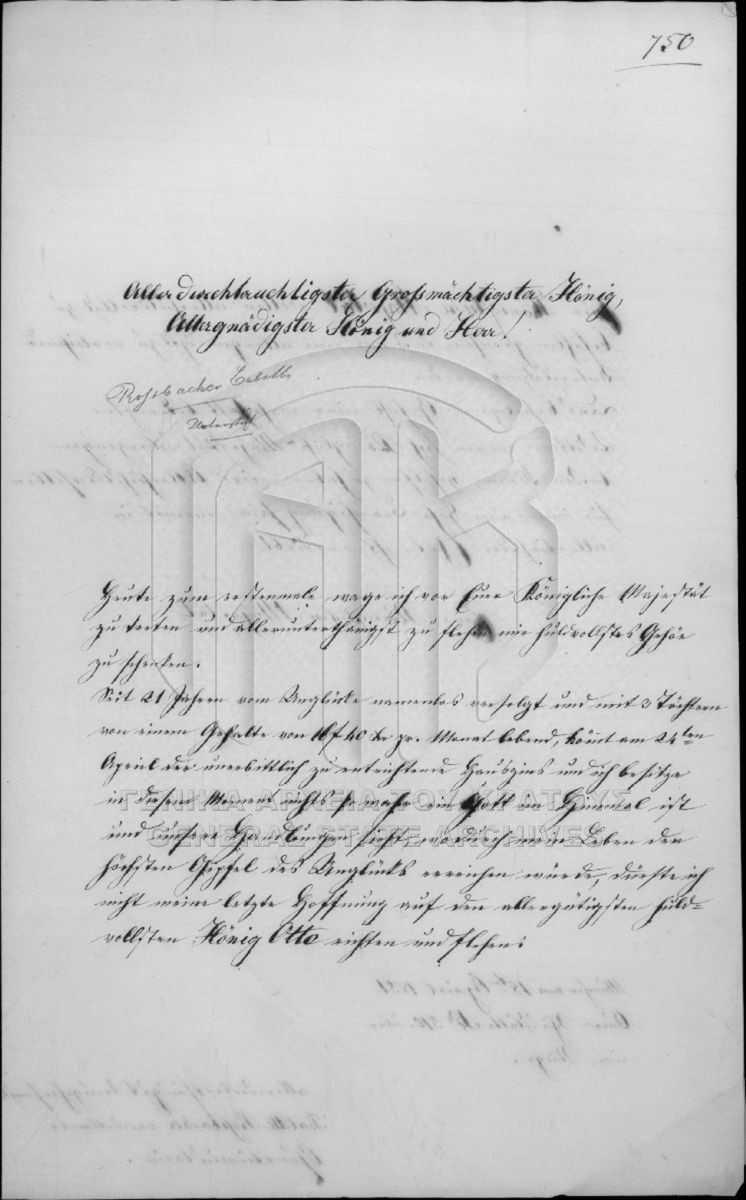 750
Allerdurchlauchtigster Großmächtigster König,
Allergnädigster König und Herr!
Rossbacher Babette
Heute zum erstenmale wage ich vor Euer Königliche Majestät
zu treten und allerunterthänigst zu flehen mir huldvollstes Gehör
zu schenken.
Seit 21 Jahren vom Unglücke namenlos verfolgt und mit 3 Töchtern
von einem Gehalte von 16 f 40 kr pr. Monat lebend, kömmt am 24ten
April der unerbittlich zu entrichtende Hauszins und ich besitze
in diesem Moment nichts so wahr ein Gott im Himmel ist
und unsere Handlungen sieht, wodurch mein Leben den
höchsten Gipfel des Unglücks erreichen würde, dürfte ich
nicht meine letzte Hoffnung auf den allergütigsten huld-
vollsten König Otto richten und flehen:
ΓΕΝΙΚΑ ΑΡΧΕΙΑ ΤΟΥ ΚΡΑΤΟΥΣ
GENERAL STATE ARCHIVES